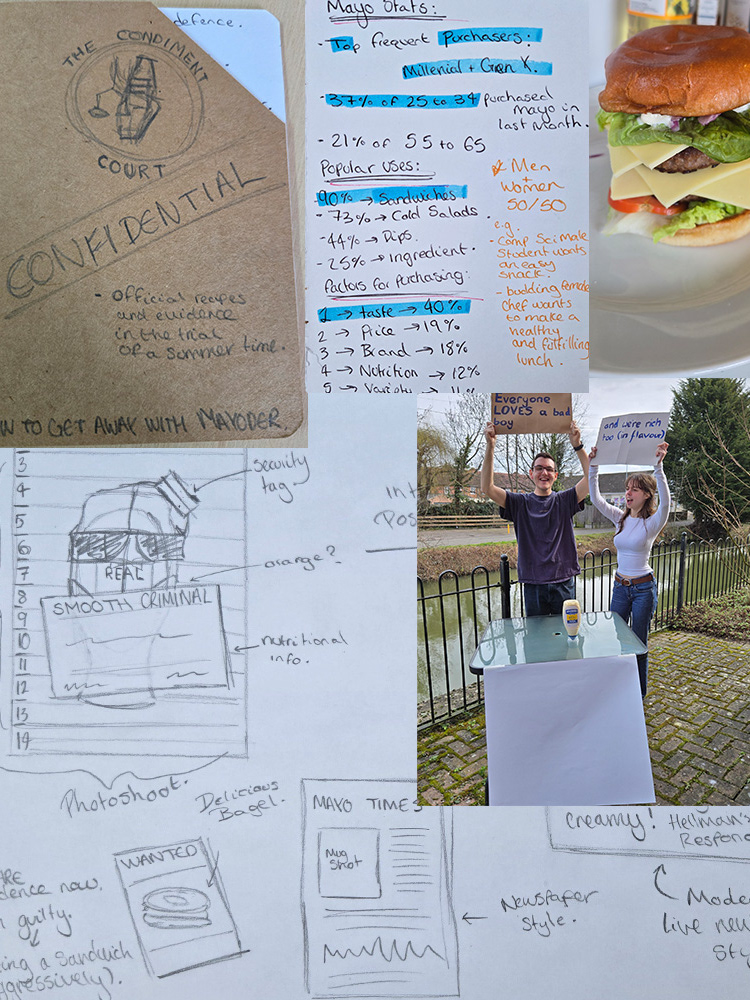 defence.
THE CONDIMENT
COURT
CONFIDENTIAL
- Official recipes
and evidence
in the trial
of a summer time.
TO GET AWAY WITH MAYODER.
Mayo Stats:
- Top frequent Purchasers:
Millenial + Gen X.
- 37% of 25 to 34 purchased
mayo in
last month.
- 21% of 55 to 65
Popular uses:
90% → Sandwiches
- 73% → Cold Salads.
- 44% → Dips.
- 25% → Ingredient.
factors for purchasing:
1 → taste → 40%
2 → Price → 19%
3 → Brand → 18%
4 → Nutrition → 12%
5 → Variety → 11%
Men
+
women
50/50
e.g.
- Comp Sci male
Student wants
an easy
snack.
- budding female
chef wants
to make a
healthy
and fulfilling
lunch.
Everyone
LOVES a bad
boy
and were rich
too (in flavour)
3
4
5
6
7
8
9
10
11
12
13
14
REAL
SMOOTH CRIMINAL
security
tag
orange?
nutritional
info.
Photoshoot.
Int
Pos
Delicious
Bagel.
WANTED
MAYO TIMES
Mug
Shot
Newspaper
Style.
creamy!
Hellman's
Respon
Mode
live new
Sty
dence now.
guilty.
ing a Sandwich
ggressively).